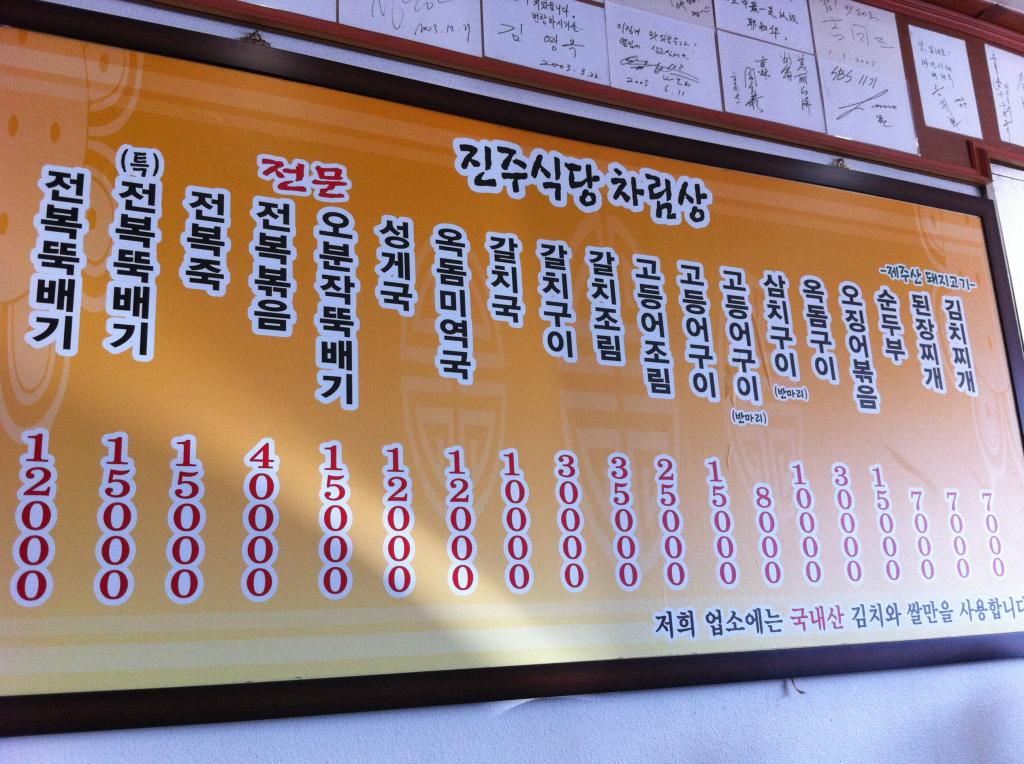 진주식당 차림상
전문
전복뚝배기 12000
(특)전복뚝배기 15000
전복죽 15000
전복볶음 40000
오분작뚝배기 15000
성게국 12000
옥돔미역국 12000
갈치국 10000
갈치구이 30000
갈치조림 35000
고등어조림 25000
고등어구이 15000
고등어구이(반마리) 8000
삼치구이(반마리) 10000
옥돔구이 30000
오징어볶음 15000
-제주산 돼지고기-
순두부 7000
된장찌개 7000
김치찌개 7000
저희 업소에는 국내산 김치와 쌀만을 사용합니다
2003.12.21
2003.3.22
2005 6.11
SBS